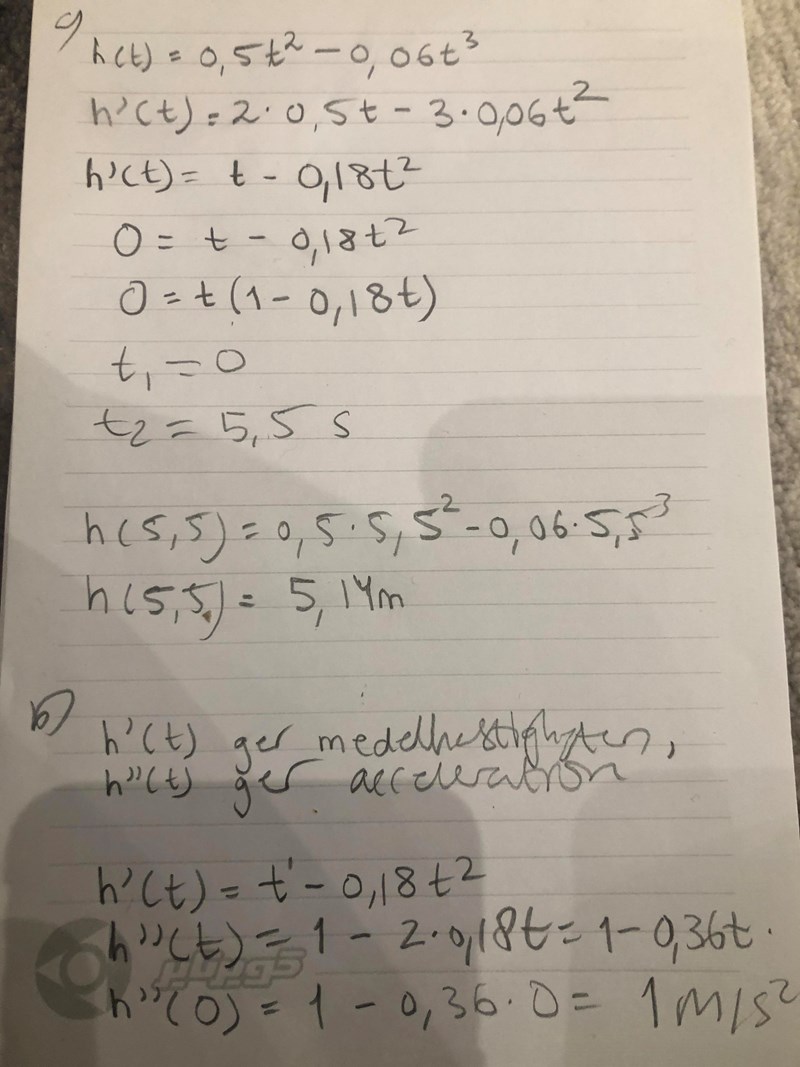 a)
h(t) = 0,5t² - 0,06t³
h'(t) = 2·0,5t - 3·0,06t²
h'(t) = t - 0,18t²
0 = t - 0,18t²
0 = t(1 - 0,18t)
t₁ = 0
t₂ = 5,5 s
h(5,5) = 0,5·5,5² - 0,06·5,5³
h(5,5) = 5,14m
b)
h'(t) ger medelhastigheten,
h''(t) ger acceleration
h'(t) = t - 0,18t²
h''(t) = 1 - 2·0,18t = 1 - 0,36t.
h''(0) = 1 - 0,36·0 = 1 m/s²